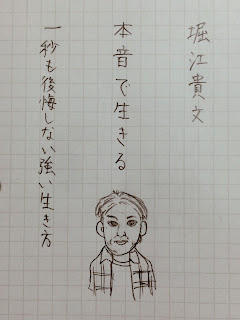 堀江貴文
本音で生きる
一秒も後悔しない強い生き方